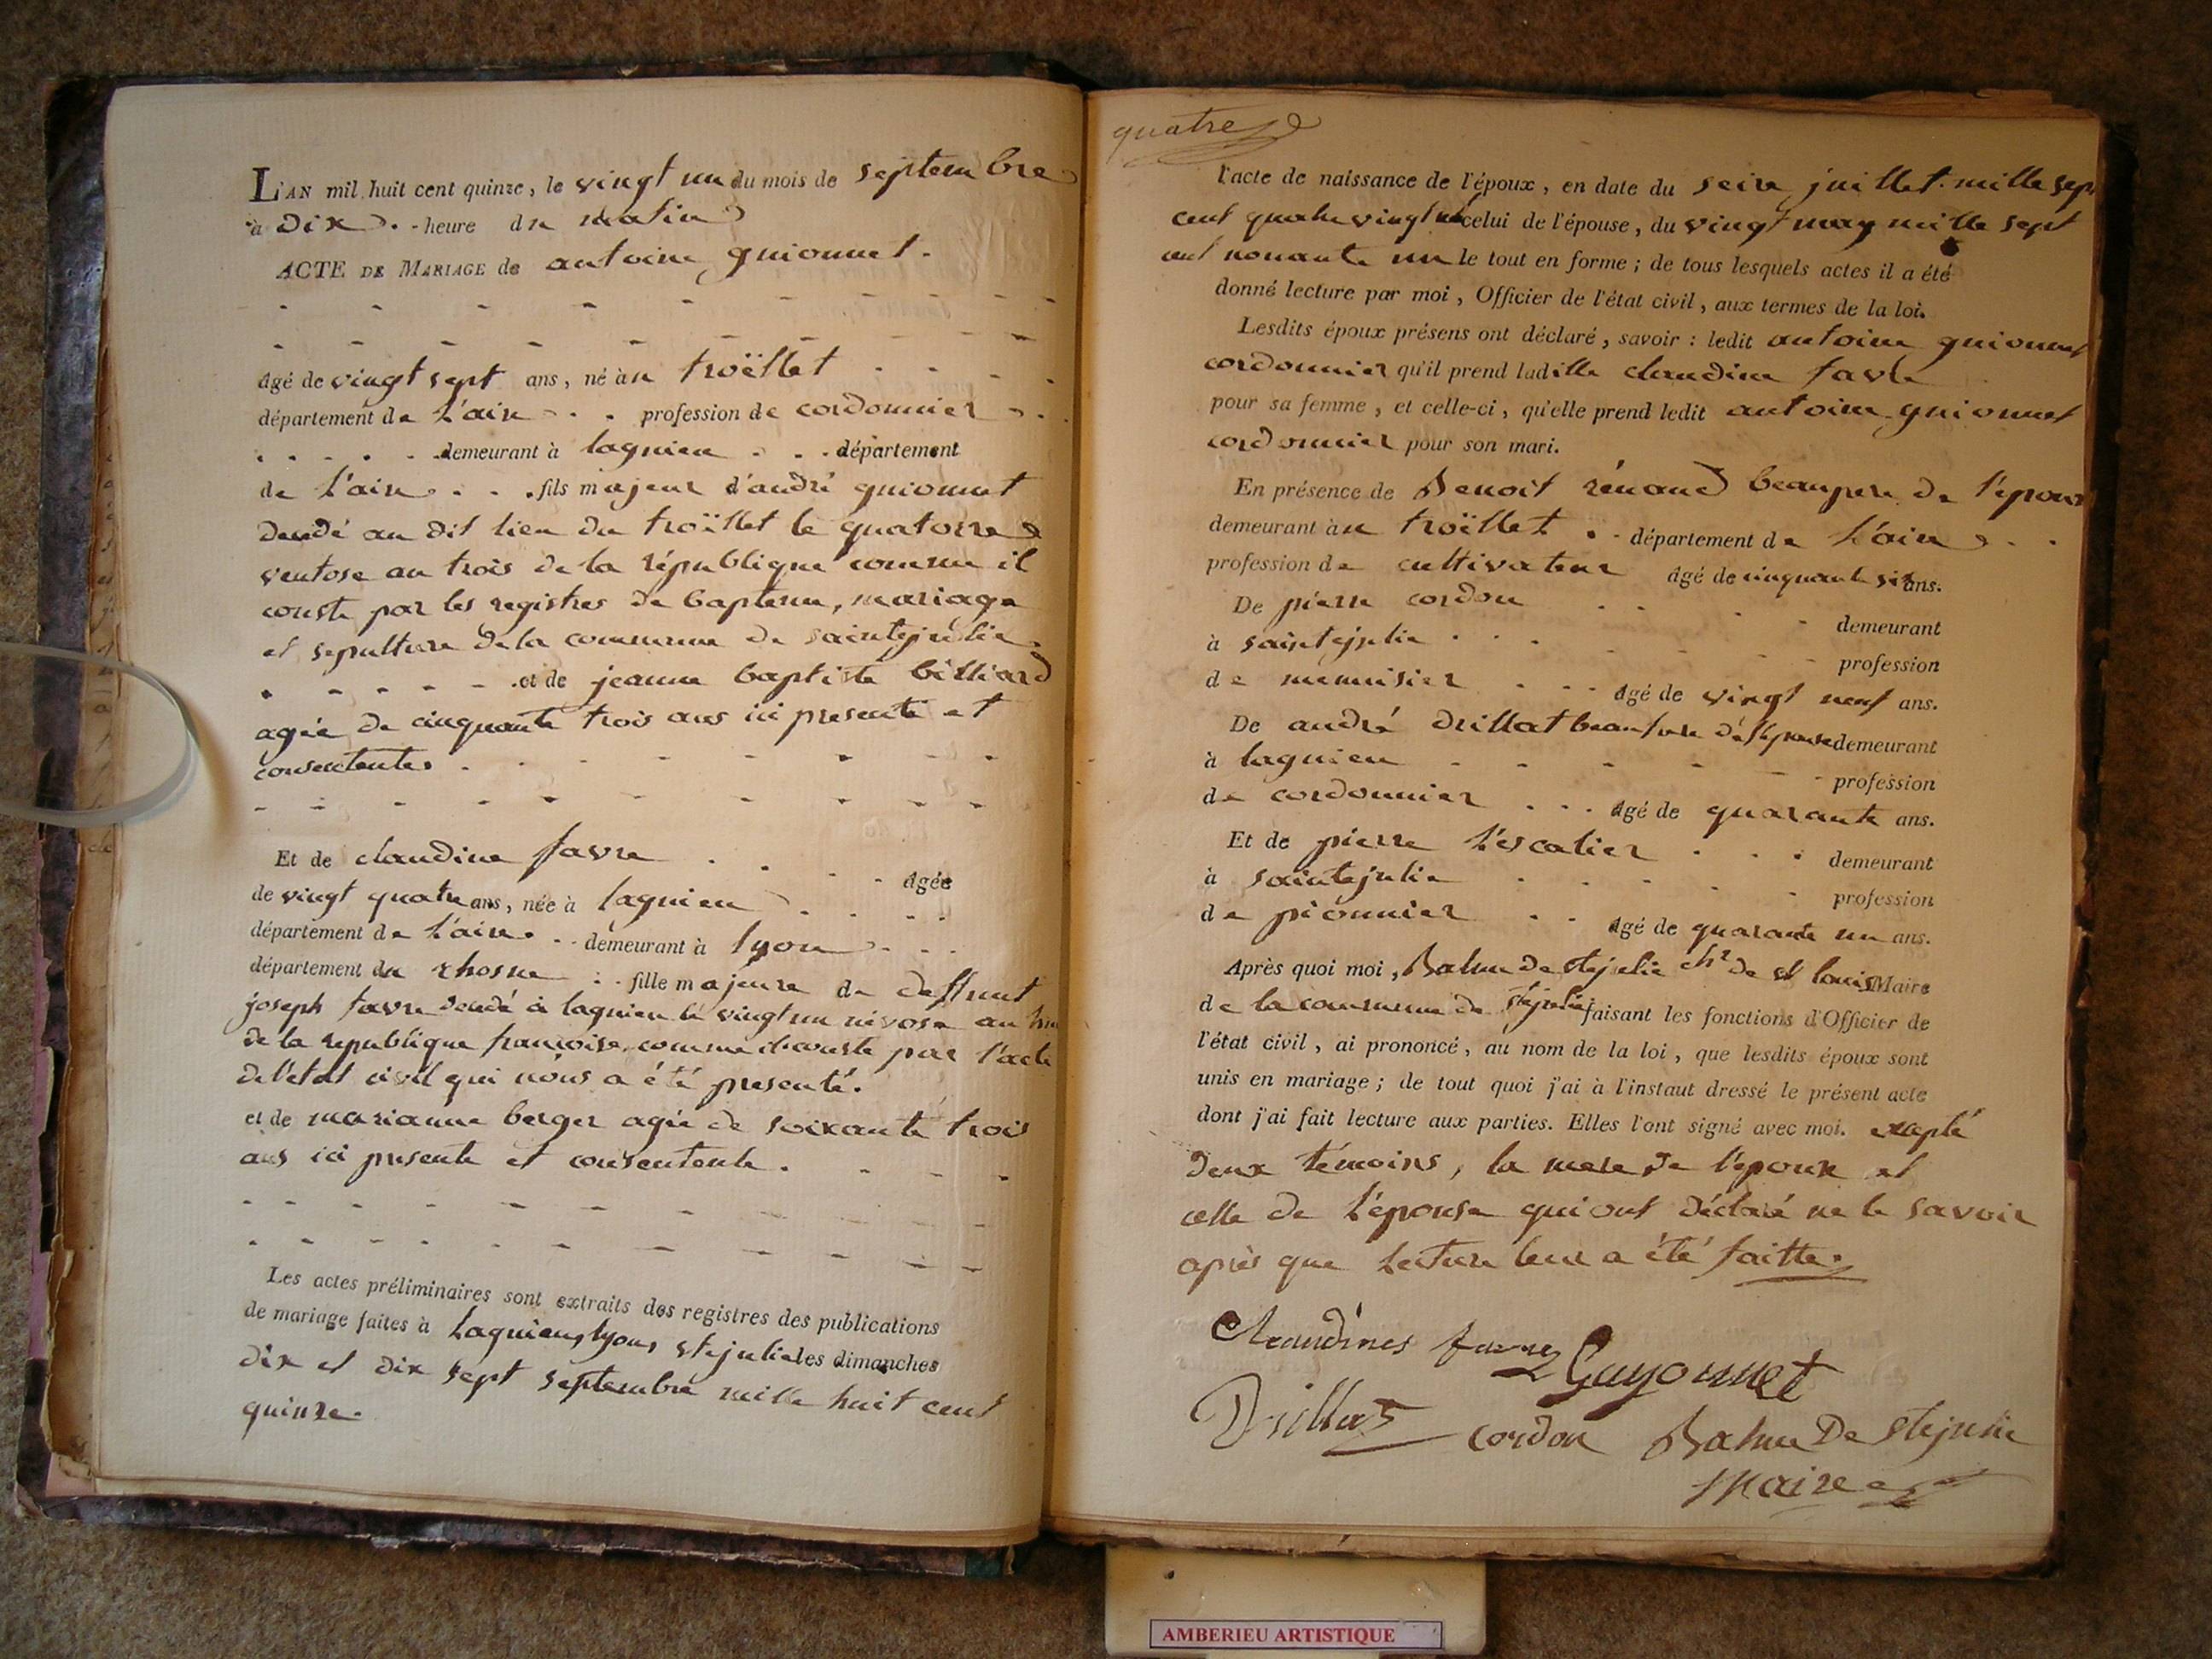 L'AN mil huit cent quinze, le vingt un du mois de septembre
à dix heure du matin
ACTE DE MARIAGE de antoine guionnet.
âgé de vingt sept ans, né au troillet
département de l'ain profession de cordonnier
demeurant à lagnieu département
de l'ain fils majeur d'andré guionnet
décédé au dit lieu du troillet le quatorze
ventose an trois de la république comme il
conste par les registres de bapteme, mariage
et sepulture de la commune de saintejulie
et de jeanne baptiste billiard
agée de cinquante trois ans ici presente et
consentente.
Et de claudine favre âgée
de vingt quatre ans, née à lagnieu
département de l'ain demeurant à lyon
département du rhosne fille majeure de deffunt
joseph favre décédé à lagnieu le vingt un nivose an
de la republique francoise comme il conste par l'acte
de l'etat civil qui nous a été presenté.
et de marianne berger agée de soixante trois
ans ici presente et consentente.
Les actes préliminaires sont extraits des registres des publications
de mariage faites à Lagnieu, lyon, ste julie les dimanches
dix et dix sept septembre mille huit cent
quinze.
quatre
l'acte de naissance de l'époux, en date du seize juillet mille sept
cent quatre vingt celui de l'épouse, du vingt may mille sept
cent nonante un le tout en forme ; de tous lesquels actes il a été
donné lecture par moi, Officier de l'état civil, aux termes de la loi.
Lesdits époux présens ont déclaré, savoir : ledit antoine guionnet
cordonnier qu'il prend ladille claudine favre
pour sa femme, et celle-ci, qu'elle prend ledit antoine guionnet
cordonnier pour son mari.
En présence de Benoit rénaud beaupere de l'époux
demeurant au troillet département de l'ain
profession de cultivateur âgé de cinquante six ans.
De pierre cordon demeurant
à saintejulie profession
de menuisier âgé de vingt neuf ans.
De andré drillat beaufrere de l'épouse demeurant
à lagnieu profession
de cordonnier âgé de quarante ans.
Et de pierre l'escalier demeurant
à saintejulie profession
de pionnier âgé de quarante un ans.
Après quoi moi, Balme de ste julie chr de st louis Maire
de la commune de ste julie faisant les fonctions d'Officier de
l'état civil, ai prononcé, au nom de la loi, que lesdits époux sont
unis en mariage ; de tout quoi j'ai à l'instaut dressé le présent acte
dont j'ai fait lecture aux parties. Elles l'ont signé avec moi. excepté
deux témoins, la mere de l'époux et
celle de l'épouse qui ont déclaré ne le savoir
après que lecture leur a été faitte.
Claudines favre Guyonnet
Drillat cordon Balme De Ste julie
Maire
AMBERIEU ARTISTIQUE